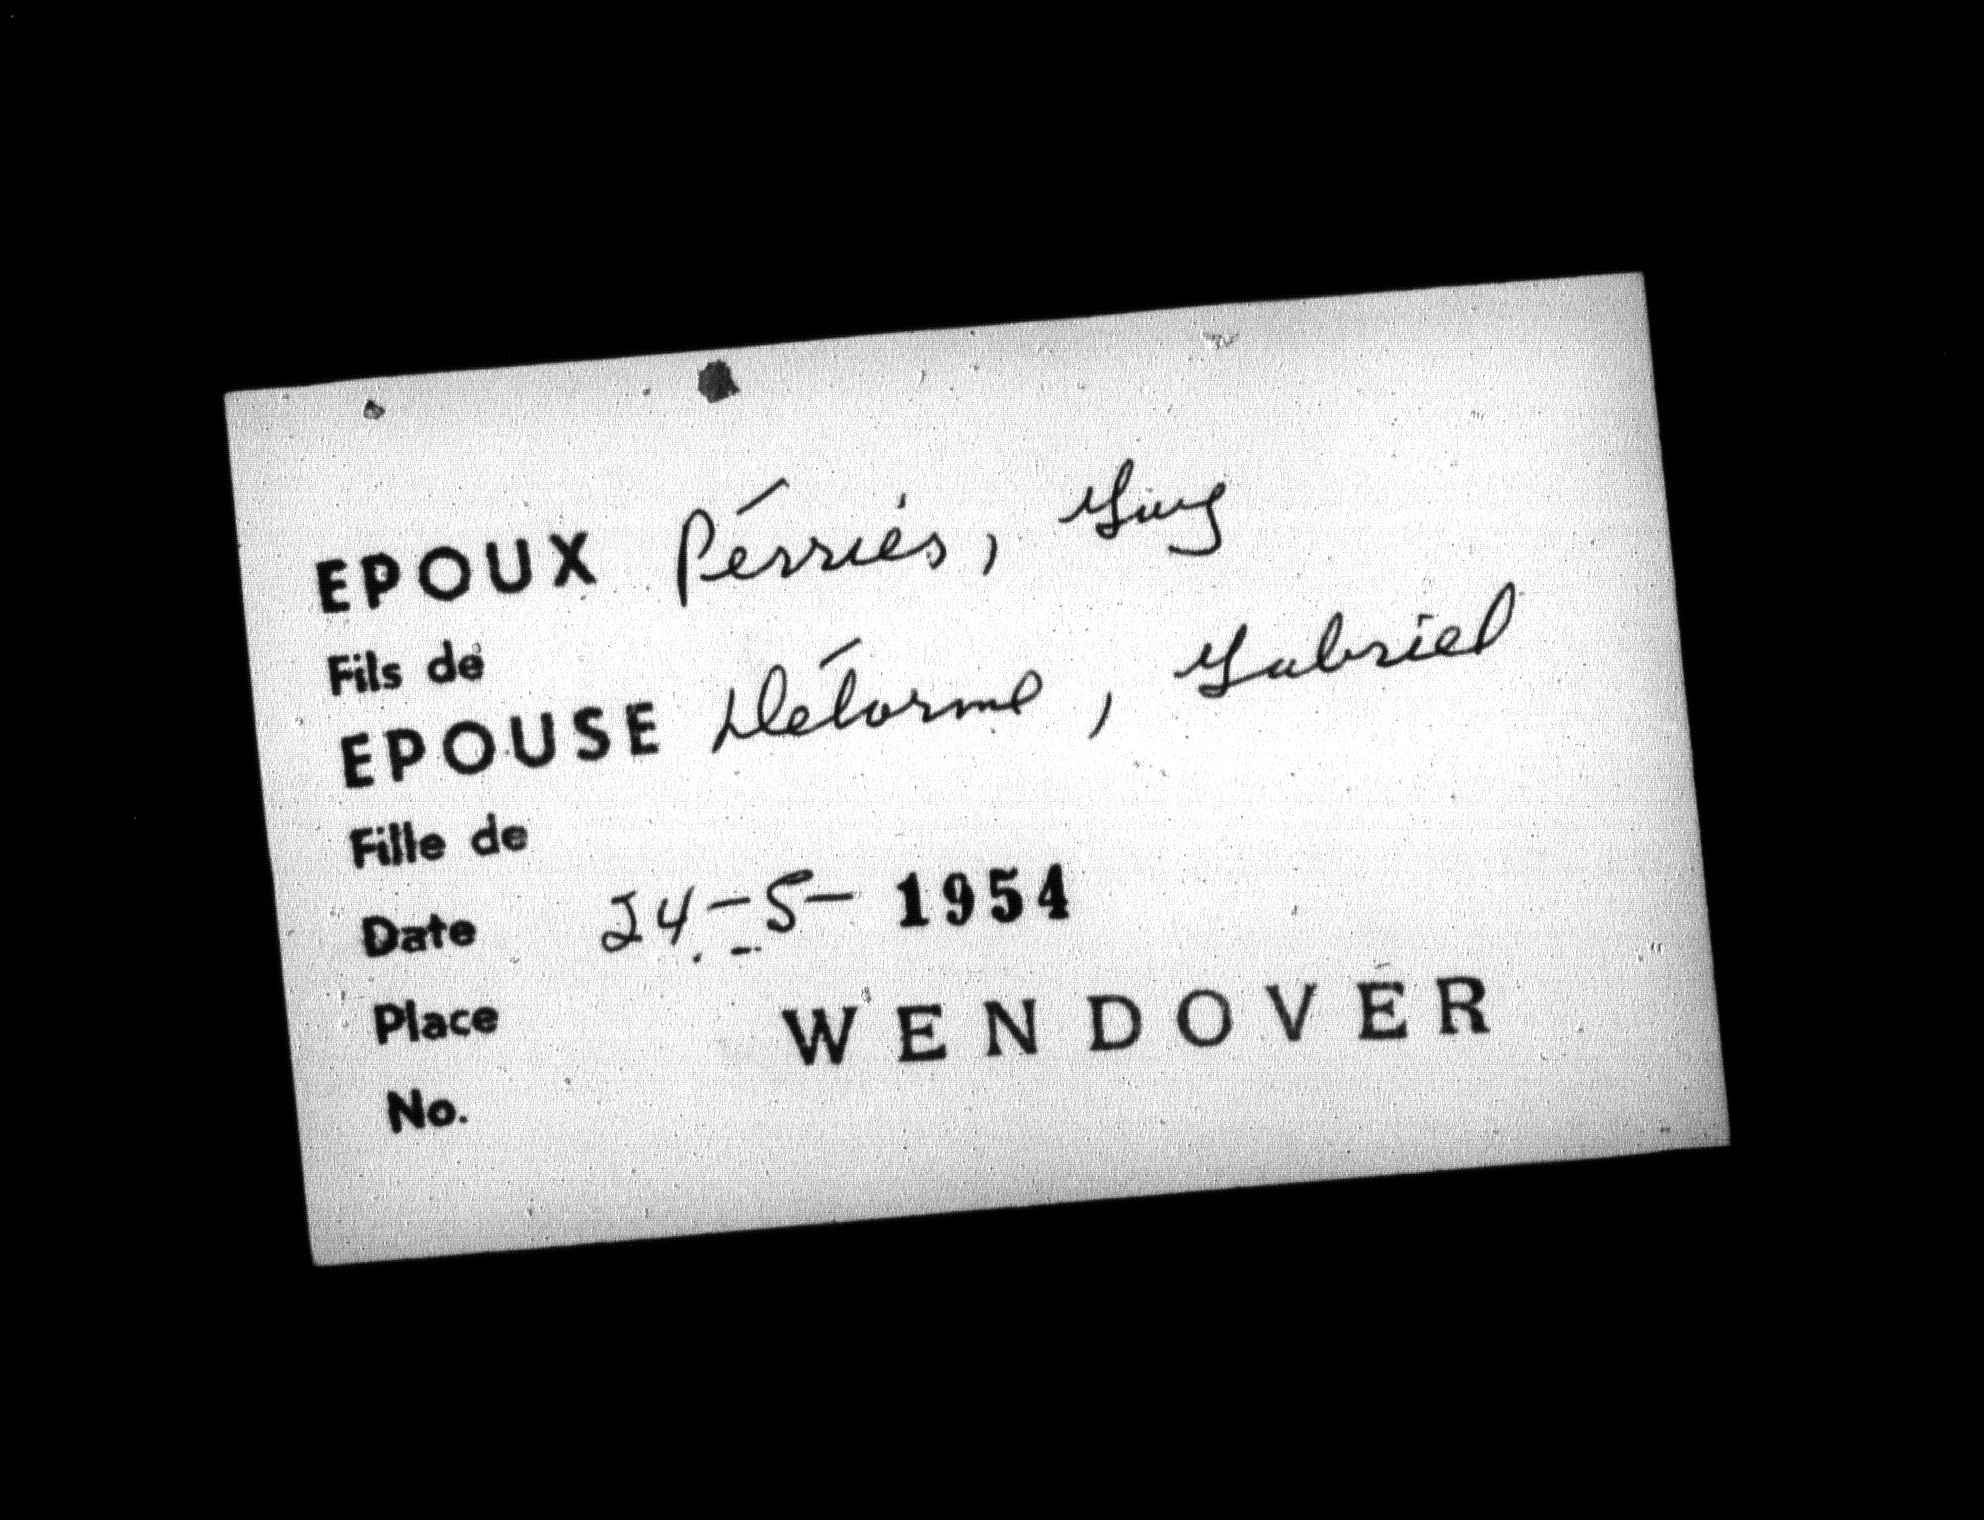 EPOUX Pérriés, Guy
Fils de
EPOUSE Délorme, Gabriel
Fille de
Date 24-5-1954
Place WENDOVER
No.